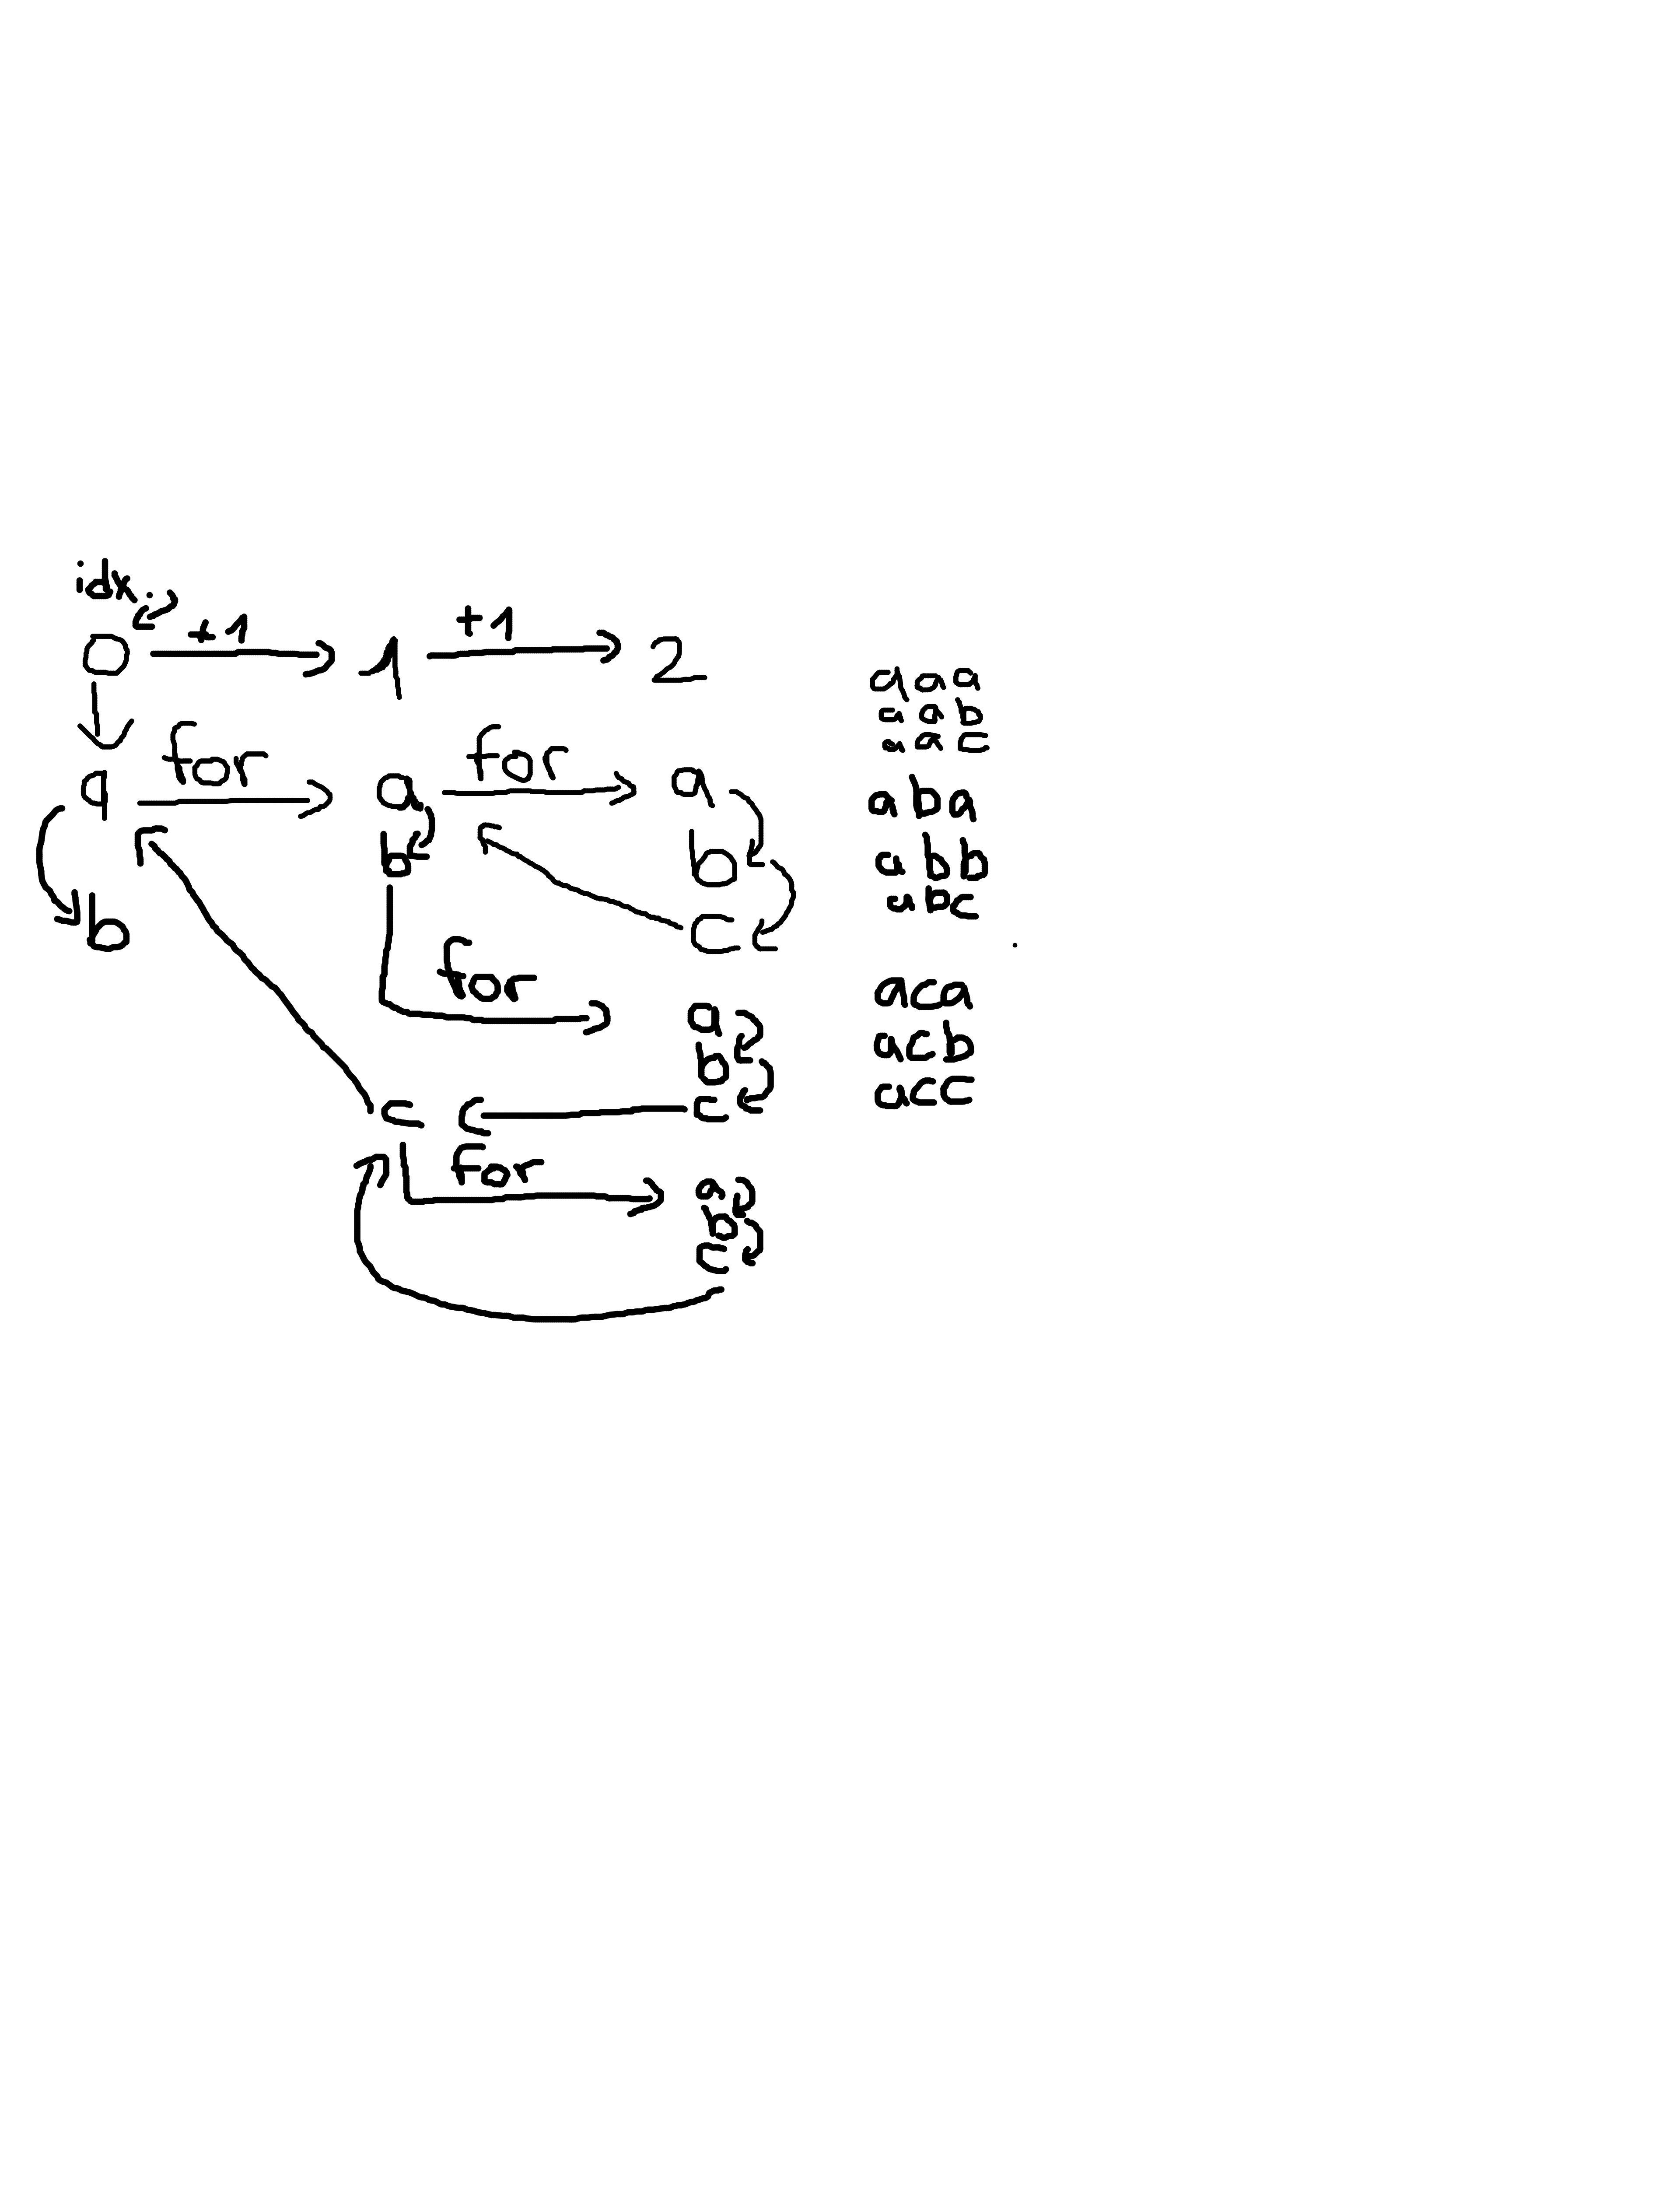 idx:
+1 +1
0 1 2
for for
a a a
b b
b c
for
a
b
c c
for
a
b
c
aaa
aab
aac
aba
abb
abc
aca
acb
acc